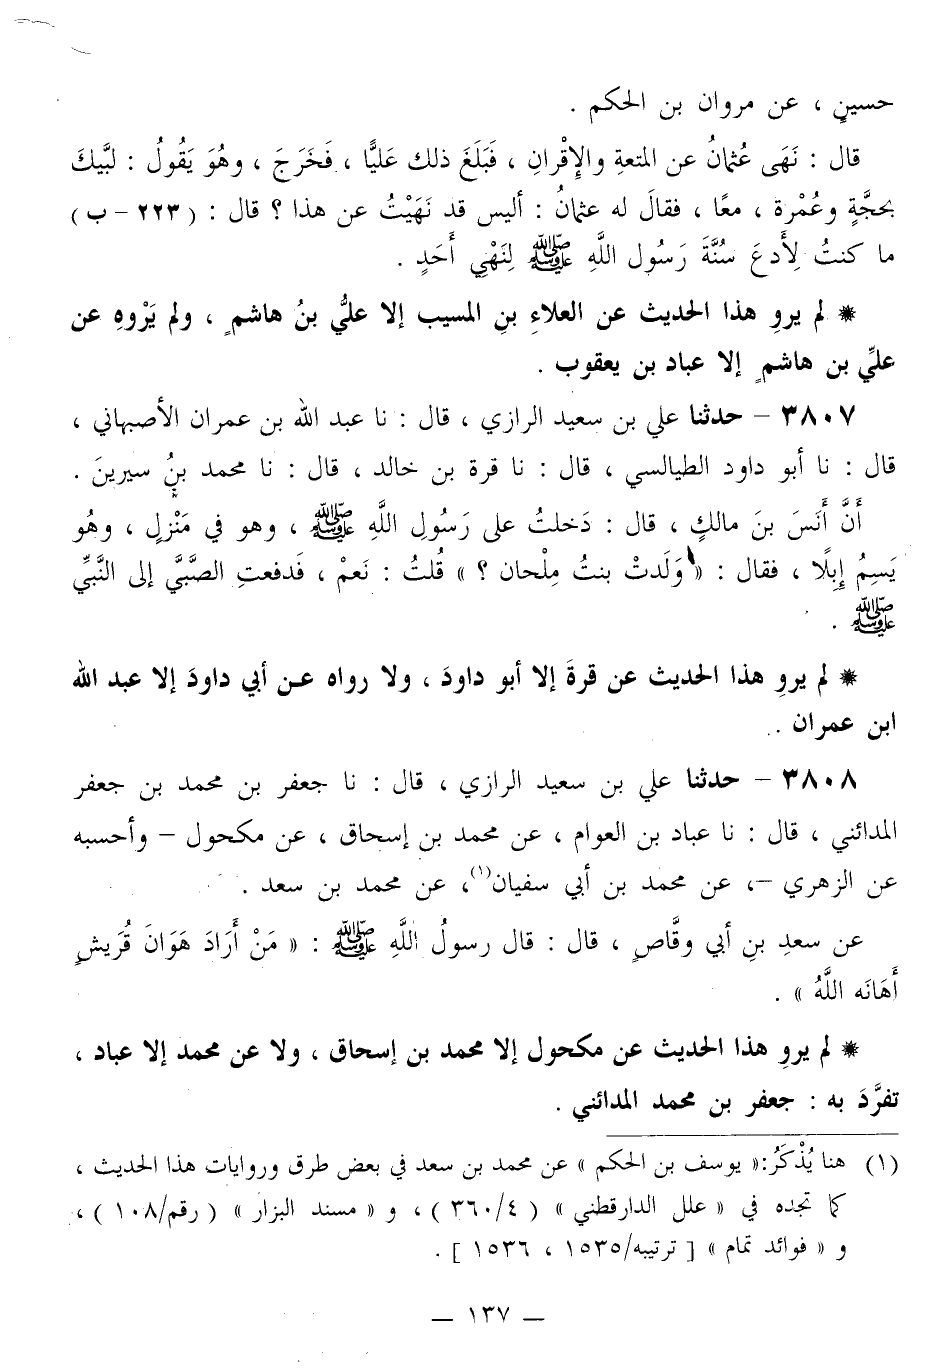 حسينٍ ، عن مروان بن الحكم .
قال : نَهَى عُثمانُ عن المتعةِ والإِقْرانِ ، فَبَلَغَ ذلك عَليًّا ، فَخَرَجَ ، وهُوَ يَقُولُ : لبَّيكَ
بحجَّةٍ وعُمْرة ، معًا ، فقالَ له عثمانُ : أليس قد نَهَيْتُ عن هذا ؟ قال : ( ٢٢٣ - ب )
ما كنتُ لِأَدعَ سُنَّةَ رَسُول اللَّهِ ﷺ لِنَهْيِ أَحَدٍ .
* لم يروِ هذا الحديث عن العلاءِ بنِ المسيب إلا عليُّ بنُ هاشمٍ ، ولم يَرْوهِ عن
عليِّ بن هاشمٍ إلا عباد بن يعقوب .
٣٨٠٧ - حدثنا علي بن سعيد الرازي ، قال : نا عبد الله بن عمران الأصبهاني ،
قال : نا أبو داود الطيالسي ، قال : نا قرة بن خالد ، قال : نا محمد بنُ سيرينَ .
أَنَّ أَنَسَ بنَ مالكٍ ، قال : دَخلتُ على رَسُولِ اللَّهِ ﷺ ، وهو في مَنْزلٍ ، وهُو
يَسِمُ إِبِلًا ، فقال : « وَلَدتْ بنتُ مِلْحان ؟ » قُلتُ : نَعمْ ، فَدفعتِ الصَّبيَّ إلى النَّبيِّ
ﷺ .
* لم يروِ هذا الحديث عن قرةَ إلا أبو داودَ ، ولا رواه عن أبي داودَ إلا عبد الله
ابن عمران .
٣٨٠٨ - حدثنا علي بن سعيد الرازي ، قال : نا جعفر بن محمد بن جعفر
المدائني ، قال : نا عباد بن العوام ، عن محمد بن إسحاق ، عن مكحول - وأحسبه
عن الزهري -، عن محمد بن أبي سفيان(١)، عن محمد بن سعد .
عن سعدِ بنِ أبي وقَّاصٍ ، قال : قال رسولُ اللَّهِ ﷺ : « مَنْ أَرَادَ هَوَانَ قُرَيشٍ
أَهَانَه اللَّهُ » .
* لم يروِ هذا الحديث عن مكحول إلا محمد بن إسحاق ، ولا عن محمد إلا عباد ،
تفرَّدَ به : جعفر بن محمد المدائني .
(١) هنا يُذْكَرُ:« يوسف بن الحكم » عن محمد بن سعد في بعض طرق وروايات هذا الحديث ،
كما تجده في « علل الدارقطني » ( ٣٦٠/٤ )، و « مسند البزار » ( رقم/١٠٨ )،
و « فوائد تمام » [ ترتيبه/١٥٣٥ ، ١٥٣٦ ] .
— ١٣٧ —